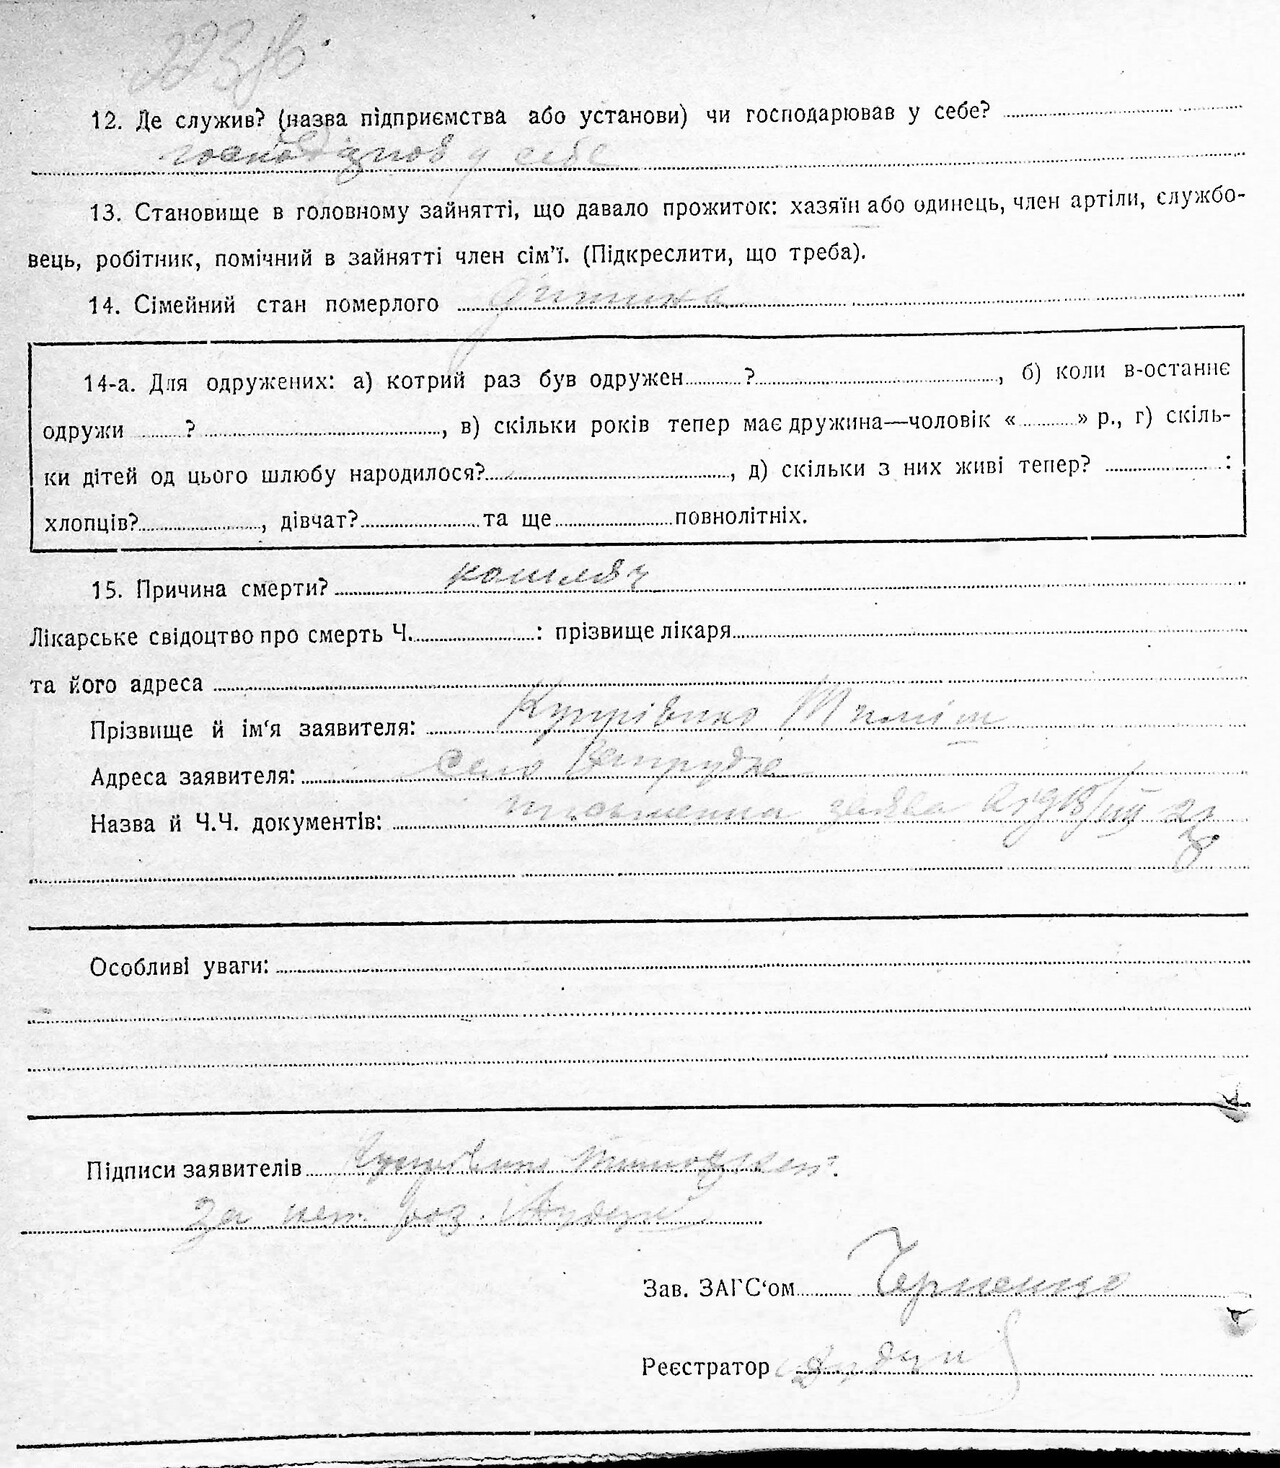 12. Де служив? (назва підприємства або установи) чи господарював у себе?
у себе
13. Становище в головному зайнятті, що давало прожиток: хазяїн або одинець, член артіли, службо-
вець, робітник, помічний в зайнятті член сім'ї. (Підкреслити, що треба).
14. Сімейний стан померлого дитина
14-а. Для одружених: а) котрий раз був одружен ?, б) коли в-останнє
одружи ?, в) скільки років тепер має дружина—чоловік « » р., г) скіль-
ки дітей од цього шлюбу народилося?, д) скільки з них живі тепер? :
хлопців?, дівчат? та ще повнолітніх.
15. Причина смерти? кашляч
Лікарське свідоцтво про смерть Ч. : прізвище лікаря
та його адреса
Прізвище й ім'я заявителя:
Адреса заявителя: Село
Назва й Ч.Ч. документів: письменна заява
Особливі уваги:
Підписи заявителів
За
Зав. ЗАГС'ом Черненко
Реєстратор